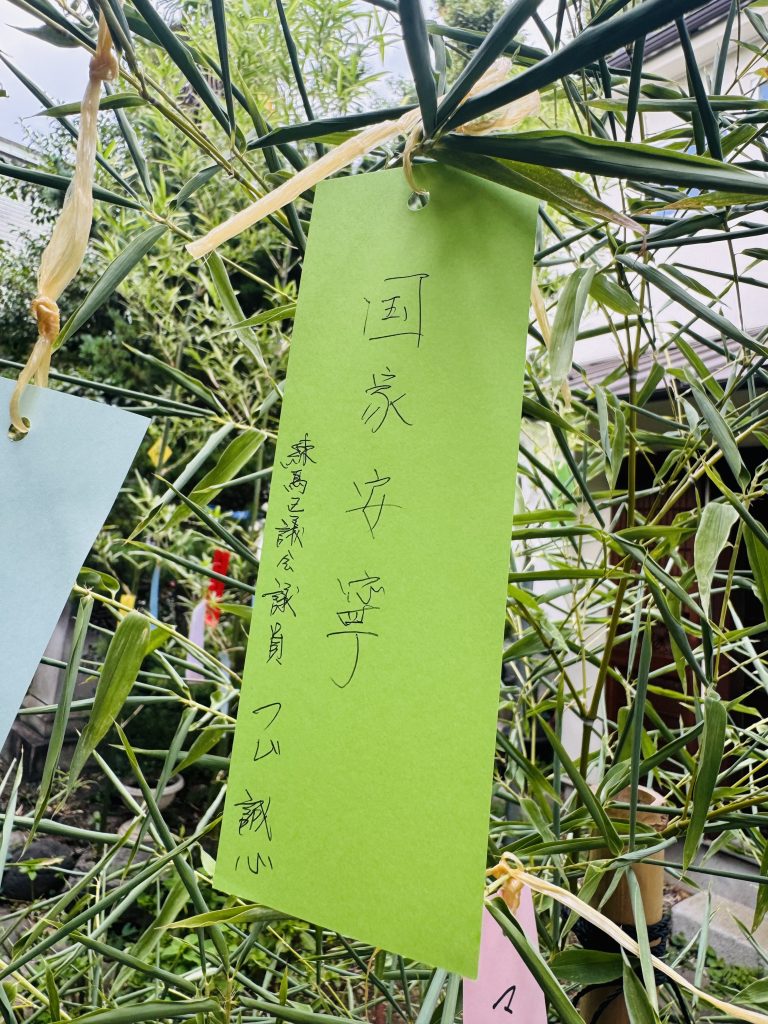 国家安寧
練馬区議会議員 つじ 誠心